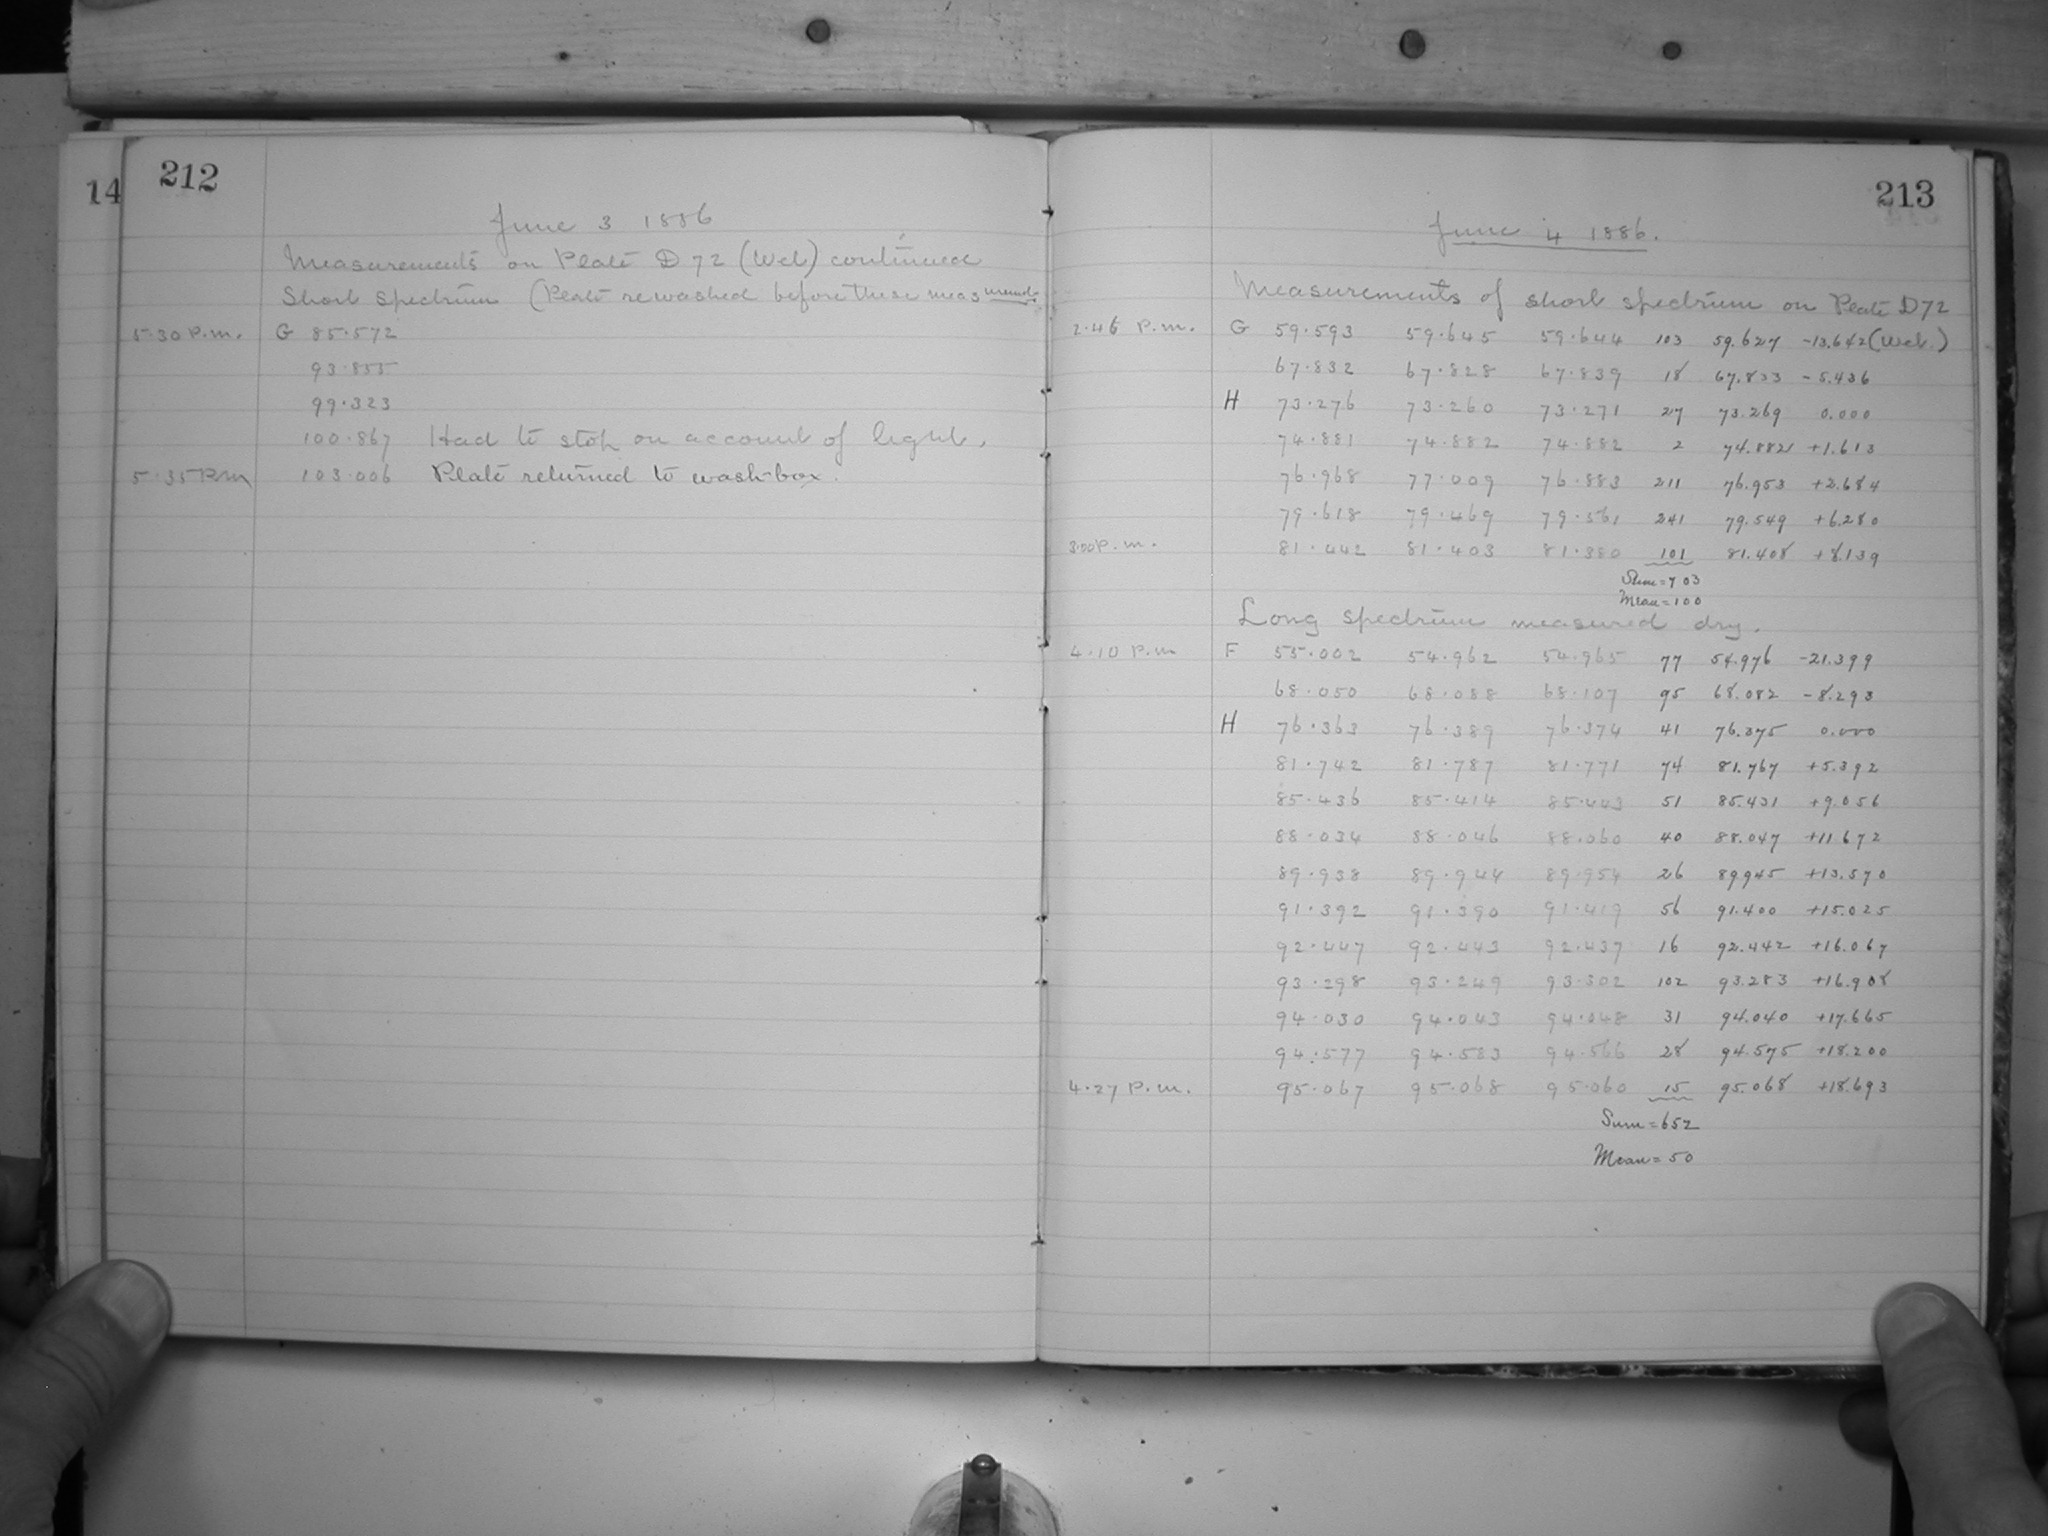 14
212
June 3 1886
Measurements on Plate D 72 (Wet) continued
Short spectrum (Plate rewashed before these measurements
5.30 P.m. G 85.572
93.855
99.323
100.867 Had to stop on account of light.
5.35 P.m 103.006 Plate returned to wash-box.
213
June 4 1886.
Measurements of short spectrum on Plate D72
2.46 P.m. G 59.593 59.645 59.644 103 59.627 -13.642 (Wet.)
67.832 67.828 67.839 18 67.833 -5.436
H 73.276 73.260 73.271 27 73.269 0.000
74.881 74.882 74.882 2 74.882 +1.613
76.968 77.009 76.883 211 76.953 +2.684
79.618 79.469 79.561 241 79.549 +6.280
3.00 P.m. 81.442 81.403 81.380 101 81.408 +8.139
Sum = 703
Mean = 100
Long spectrum measured dry.
4.10 P.m F 55.002 54.962 54.965 77 54.976 -21.399
68.050 68.088 68.107 95 68.082 -8.293
H 76.363 76.389 76.374 41 76.375 0.000
81.742 81.787 81.771 74 81.767 +5.392
85.436 85.414 85.443 51 85.431 +9.056
88.034 88.046 88.060 40 88.047 +11.672
89.938 89.944 89.954 26 89.945 +13.570
91.392 91.390 91.419 56 91.400 +15.025
92.447 92.443 92.437 16 92.442 +16.067
93.298 93.249 93.302 102 93.283 +16.908
94.030 94.043 94.048 31 94.040 +17.665
94.577 94.583 94.566 28 94.575 +18.200
4.27 P.m. 95.067 95.068 95.060 15 95.068 +18.693
Sum = 652
Mean = 50